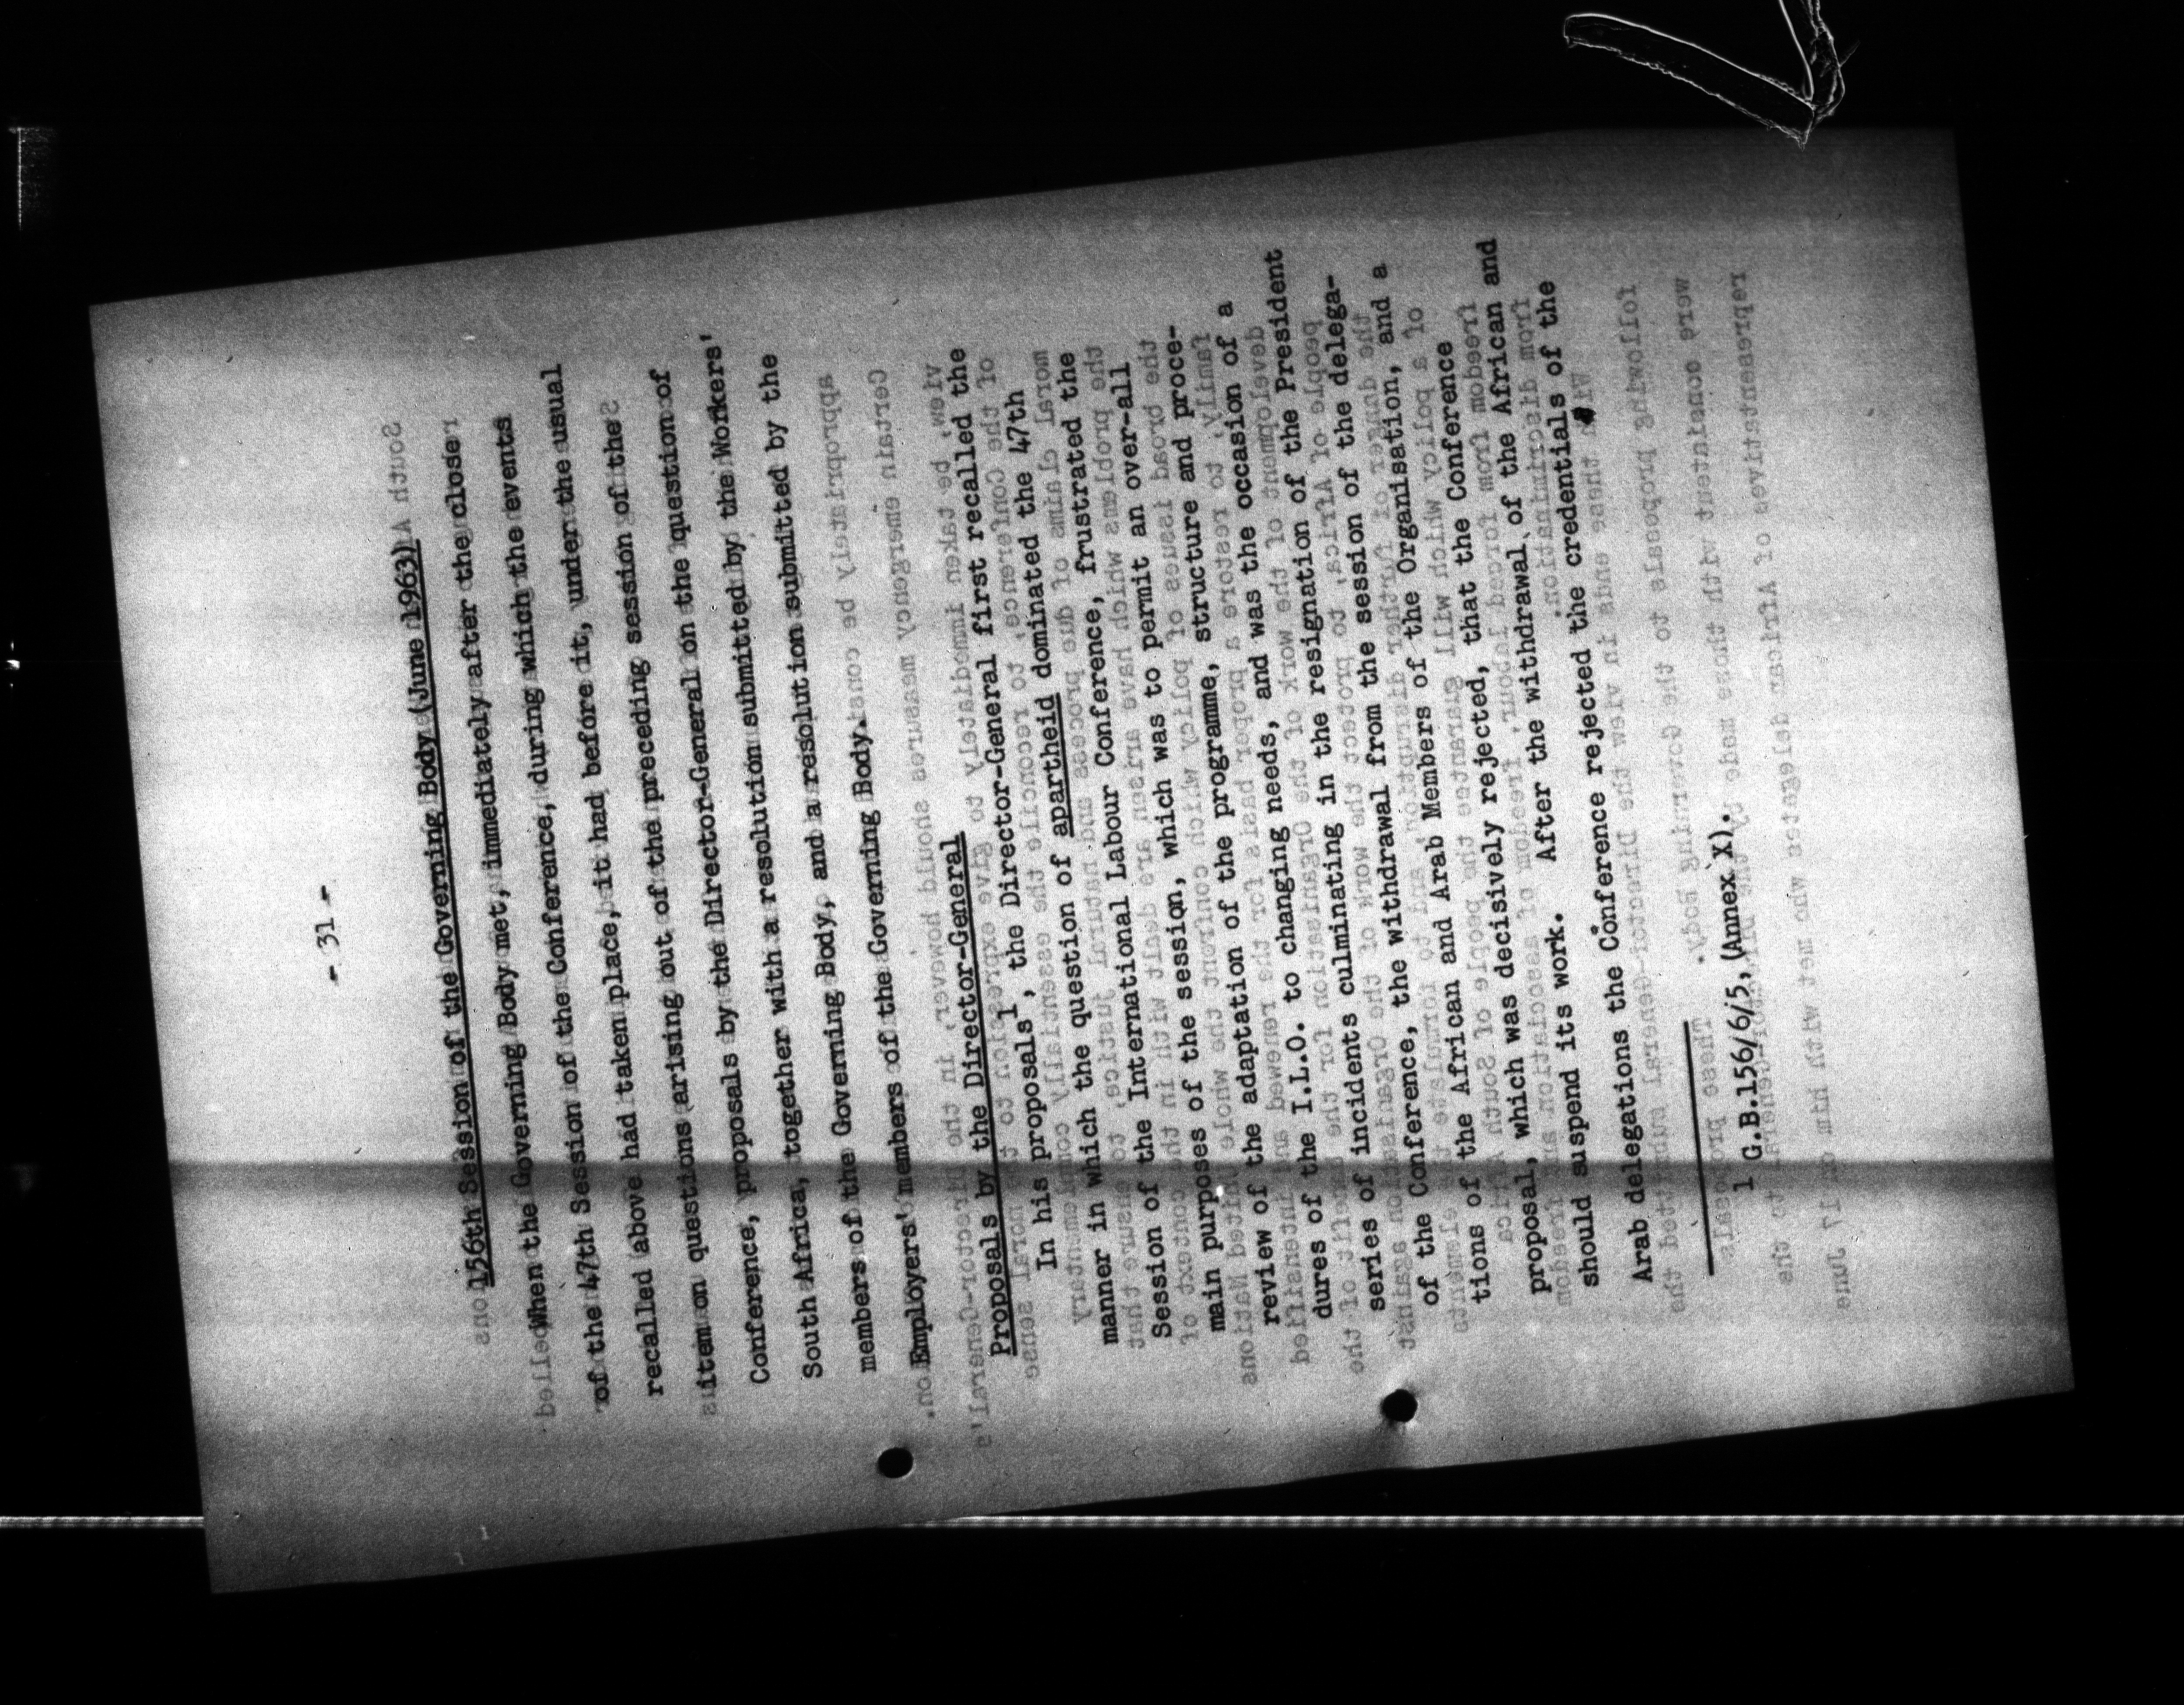 - 31 -
156th Session of the Governing Body (June 1963)
When the Governing Body met, immediately after the close
of the 47th Session of the Conference, during which the events
recalled above had taken place, it had before it, under the usual
item on questions arising out of the preceding session of the
Conference, proposals by the Director-General on the question of
South Africa, together with a resolution submitted by the Workers'
members of the Governing Body, and a resolution submitted by the
Employers' members of the Governing Body.
Proposals by the Director-General
In his proposals1, the Director-General first recalled the
manner in which the question of apartheid dominated the 47th
Session of the International Labour Conference, frustrated the
main purposes of the session, which was to permit an over-all
review of the adaptation of the programme, structure and proce-
dures of the I.L.O. to changing needs, and was the occasion of a
series of incidents culminating in the resignation of the President
of the Conference, the withdrawal from the session of the delega-
tions of the African and Arab Members of the Organisation, and a
proposal, which was decisively rejected, that the Conference
should suspend its work. After the withdrawal of the African and
Arab delegations the Conference rejected the credentials of the
1 G.B.156/6/5, (Annex X).